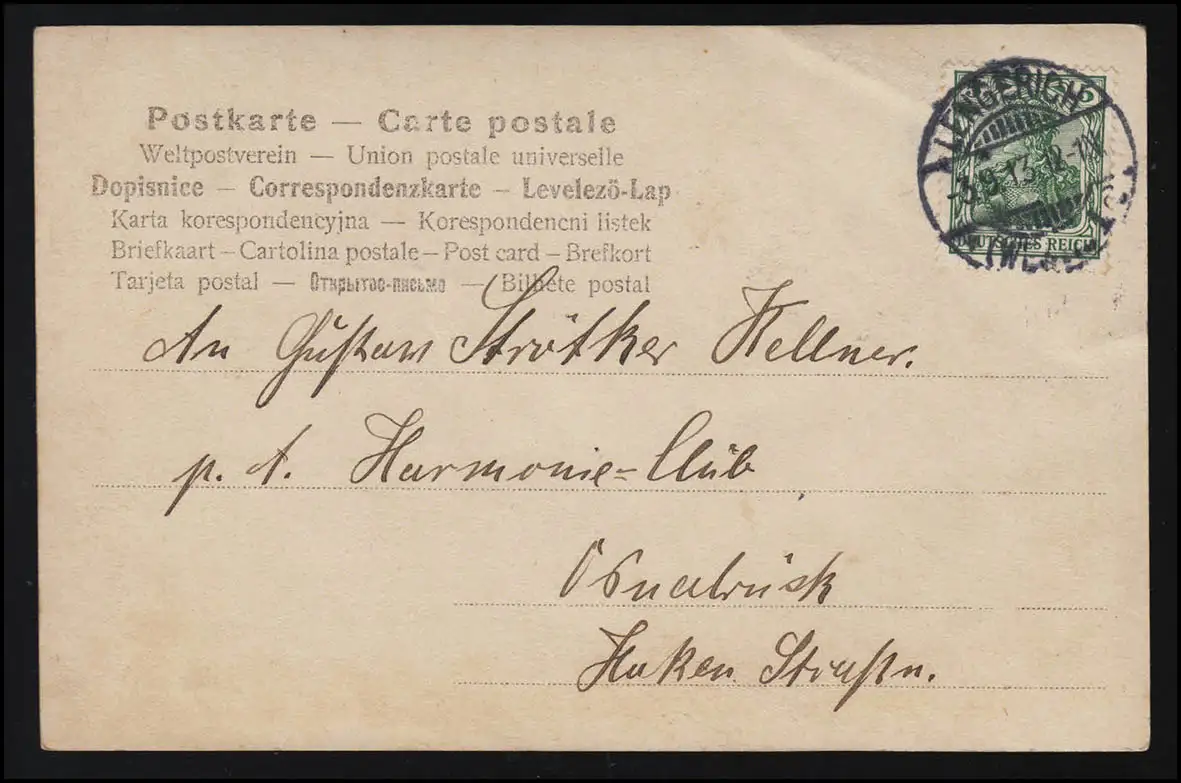 Postkarte — Carte postale
Weltpostverein — Union postale universelle
Dopisnice — Correspondenzkarte — Levelező-Lap
Karta korespondencyjna — Korespondencni listek
Briefkaart — Cartolina postale — Post card — Brefkort
Tarjeta postal — Открытое-письмо — Bilhete postal
LENGERICH
5
3.9.13. 12-1
DEUTSCHES REICH
An Gustav Strötker Kellner.
p. A. Harmonie=Club
Osnabrück
Haken Straße